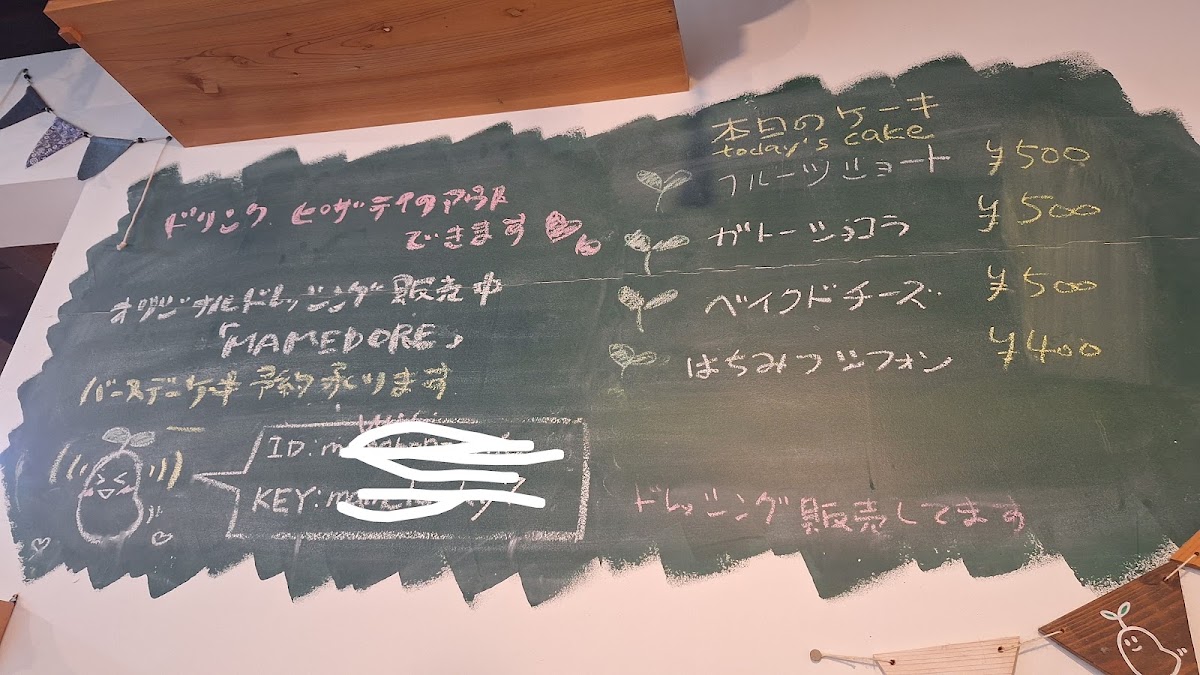 ドリンク、ピザテイクアウト
できます
オリジナルドレッシング販売中
「MAMEDORE」
バースデーケーキ予約承ります
ID:
KEY:
本日のケーキ
today's cake
フルーツショート ¥500
ガトーショコラ ¥500
ベイクドチーズ ¥500
はちみつシフォン ¥400
ドレッシング販売してます